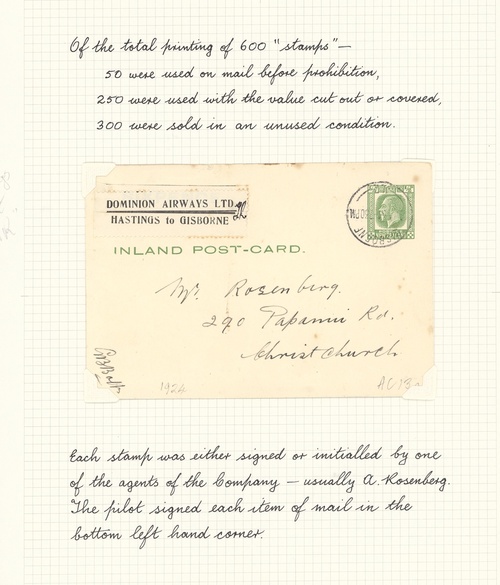 Of the total printing of 600 "stamps"—
50 were used on mail before prohibition,
250 were used with the value cut out or covered,
300 were sold in an unused condition.
DOMINION AIRWAYS LTD.
HASTINGS to GISBORNE
INLAND POST-CARD.
Mr. Rosenberg.
290 Papanui Rd.
Christchurch
1924
AC 13a
Each stamp was either signed or initialled by one
of the agents of the Company — usually A. Rosenberg.
The pilot signed each item of mail in the
bottom left hand corner.